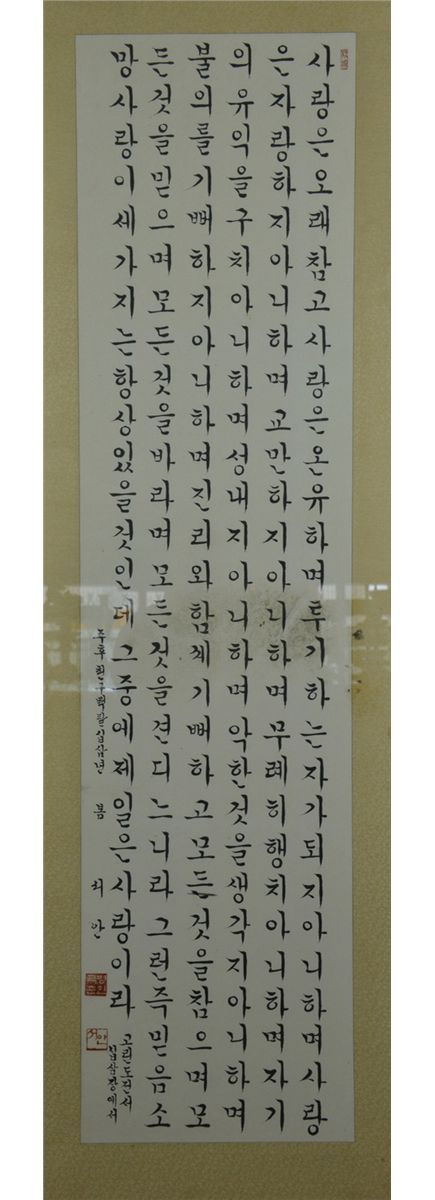 사랑은오래참고사랑은온유하며투기하는자가되지아니하며사랑
은자랑하지아니하며교만하지아니하며무례히행치아니하며자기
의유익을구치아니하며성내지아니하며악한것을생각지아니하며
불의를기뻐하지아니하며진리와함께기뻐하고모든것을참으며모
든것을믿으며모든것을바라며모든것을견디느니라그런즉믿음소
망사랑이세가지는항상있을것인데그중에제일은사랑이라
고린도전서
십삼장에서
주후천구백팔십삼년 봄